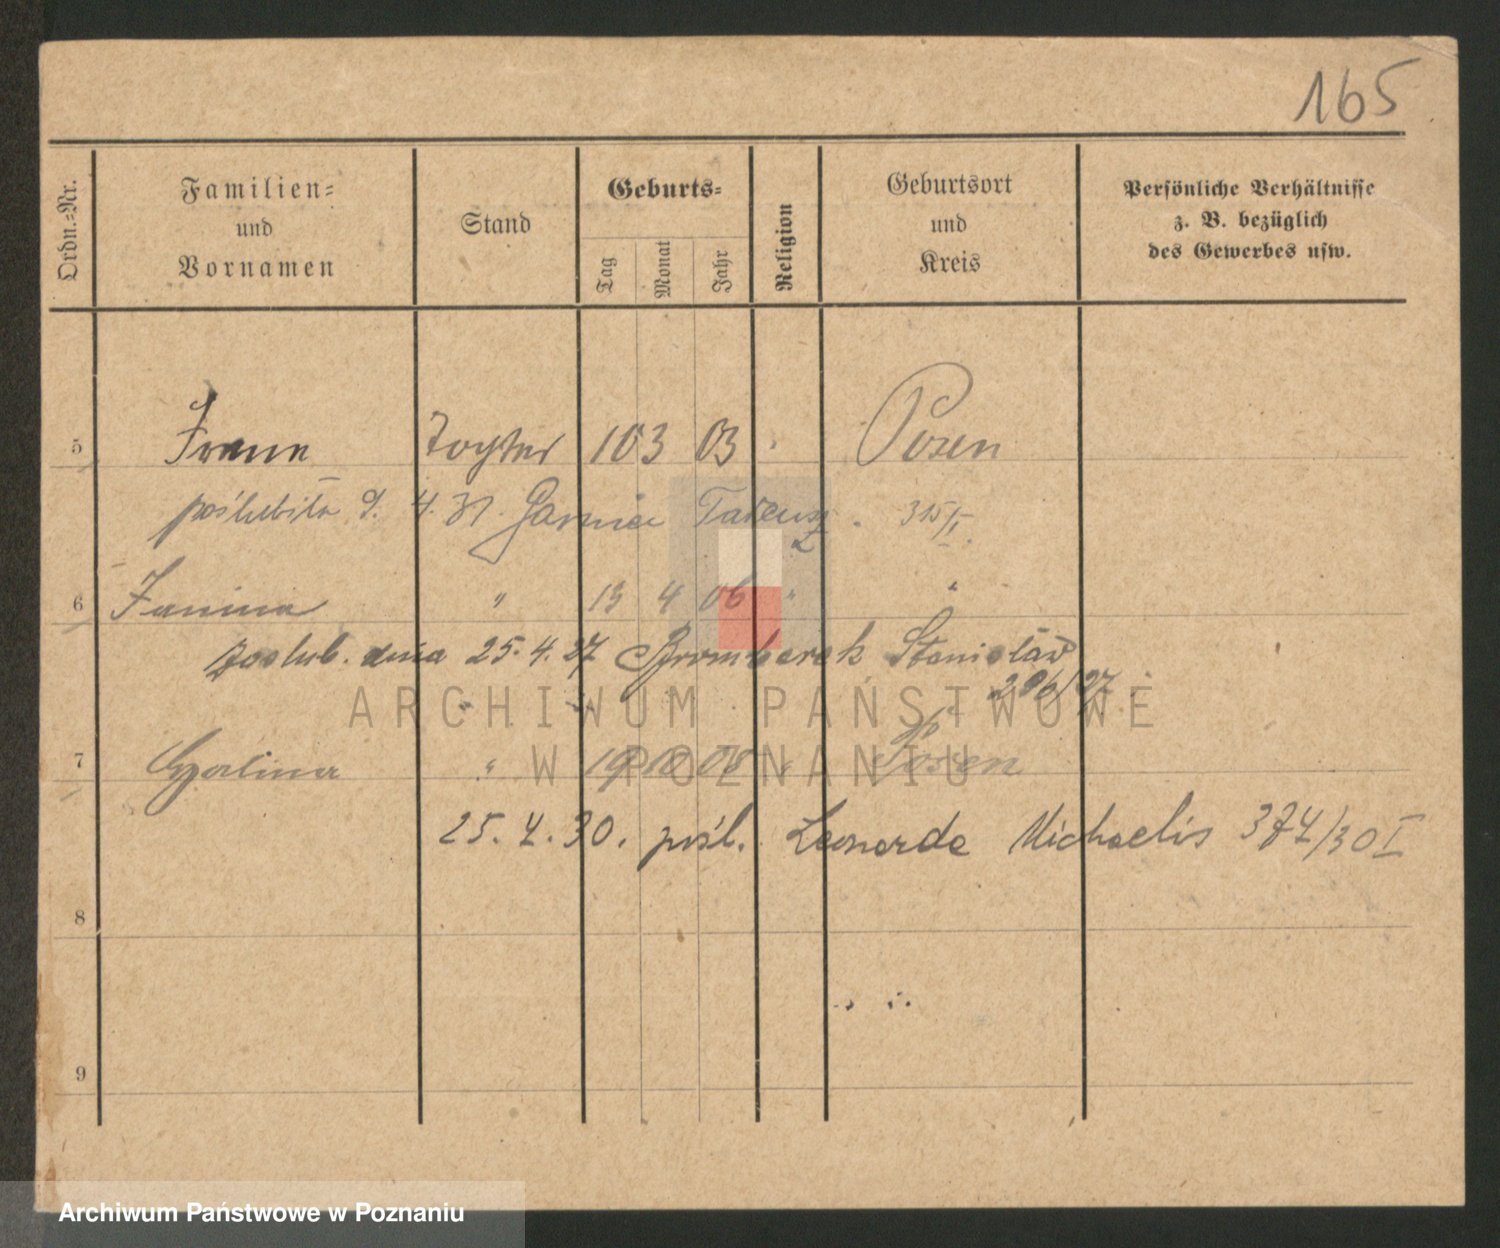 165
Ordn.=Nr.
Familien=
und
Vornamen
Stand
Geburts=
Tag
Monat
Jahr
Religion
Geburtsort
und
Kreis
Persönliche Verhältnisse
z. B. bezüglich
des Gewerbes usw.
5 Irene Tochter 10 3 03 " Posen
poślubiła 4. 31. Tadeusz. 315/I
6 Janina " 13 4 06 " "
poślub. dnia 25.4.27 Bromberek Stanisław
296/27
7 Halina " 19 10 08 " Posen
25. 4. 30. pośl. Leonarda Michaelis 374/30 I
8
9
ARCHIWUM PAŃSTWOWE
W POZNANIU
Archiwum Państwowe w Poznaniu